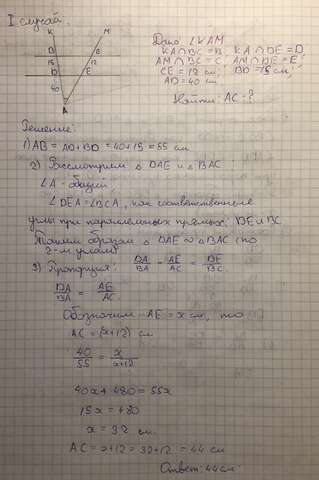 I случай.
K M
B 8
15 12
D E
40
A
Дано ∠KAM
KA∩BC=B, KA∩DE=D,
AM∩BC=C, AM∩DE=E,
CE=12 см, BD=15 см,
AD=40 см.
Найти: AC-?
Решение:
1) AB = AD+BD = 40+15=55 см
2) Рассмотрим △ DAE и △ BAC
∠A - общий
∠DEA=∠BCA, как соответственные
углы при параллельных прямых: DE и BC
Таким образом △ DAE ∾ △ BAC (по
2-м углам)
3) Пропорция: DA/BA = AE/AC = DE/BC
DA/BA = AE/AC
Обозначим AE=x см, то
AC=(x+12) см
40/55 = x/x+12
40x+480=55x
15x=480
x=32 см.
AC=x+12=32+12=44 см
Ответ: 44 см.